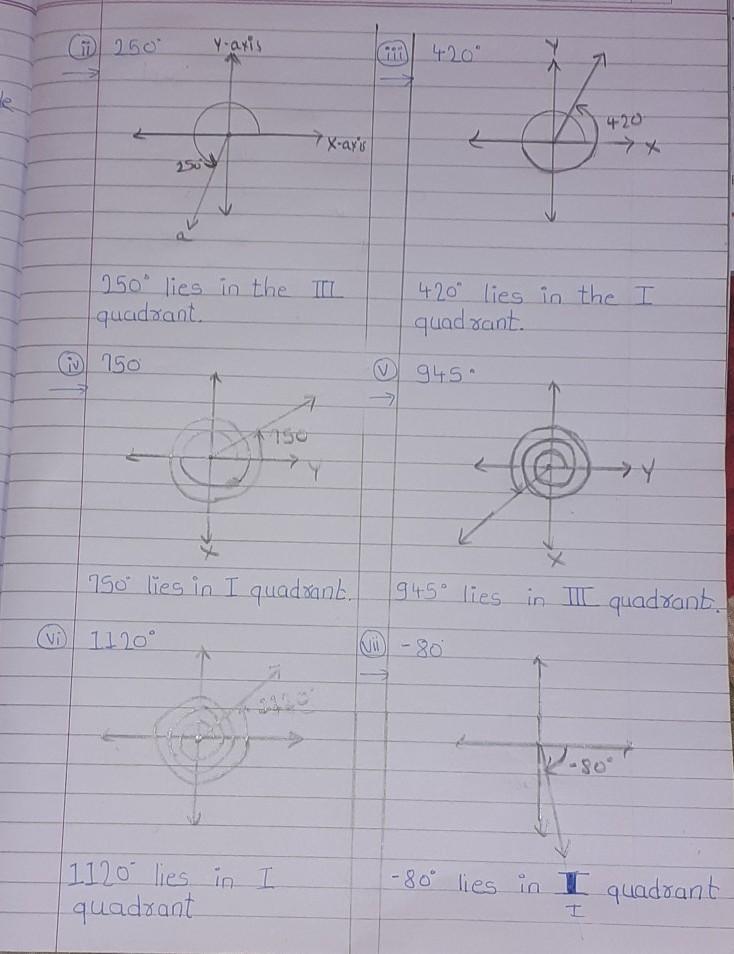 (ii) 250°
→
Y-axis
X-axis
250°
a
250° lies in the III
quadrant.
(iii) 420°
→
Y
420
X
420° lies in the I
quadrant.
(iv) 750
→
750
Y
X
750° lies in I quadrant.
(v) 945°
→
Y
X
945° lies in III quadrant.
(vi) 1120°
1120°
1120° lies in I
quadrant
(vii) -80
→
-80°
-80° lies in quadrant
I